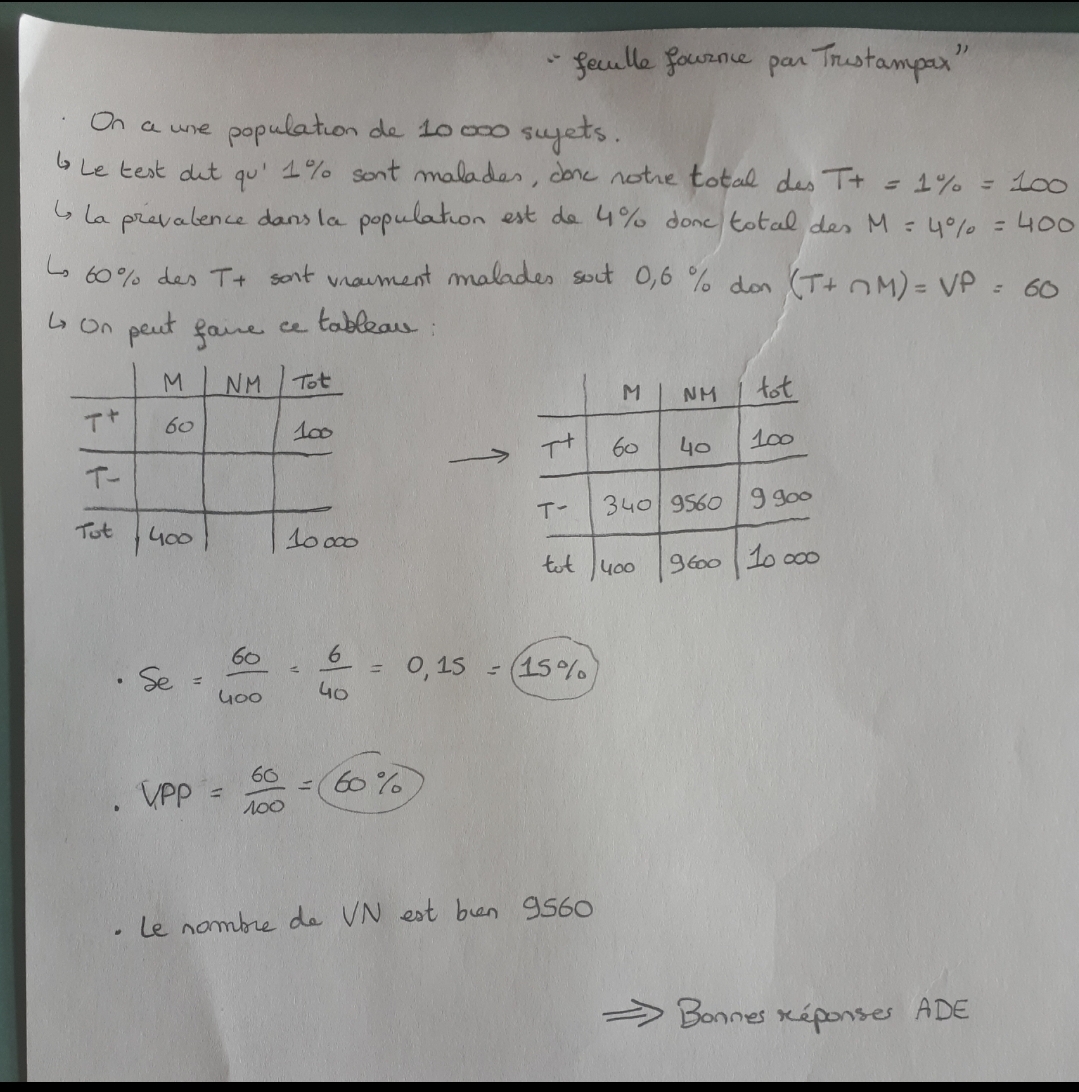 " feuille fournie par Trustampax"
. On a une population de 10 000 sujets.
↳ Le test dit qu' 1% sont malades, donc notre total des T+ = 1% = 100
↳ La prévalence dans la population est de 4% donc total des M = 4% = 400
↳ 60% des T+ sont vraiment malades soit 0,6 % don (T+ ∩ M) = VP = 60
↳ On peut faire ce tableau :
M | NM | Tot
T+ 60 | | 100
T-
Tot | 400 | | 10 000
→
M | NM | tot
T+ | 60 | 40 | 100
T- | 340 | 9560 | 9 900
tot | 400 | 9600 | 10 000
. Se = 60/400 = 6/40 = 0,15 = 15%
. VPP = 60/100 = 60%
. Le nombre de VN est bien 9560
⇒ Bonnes réponses ADE